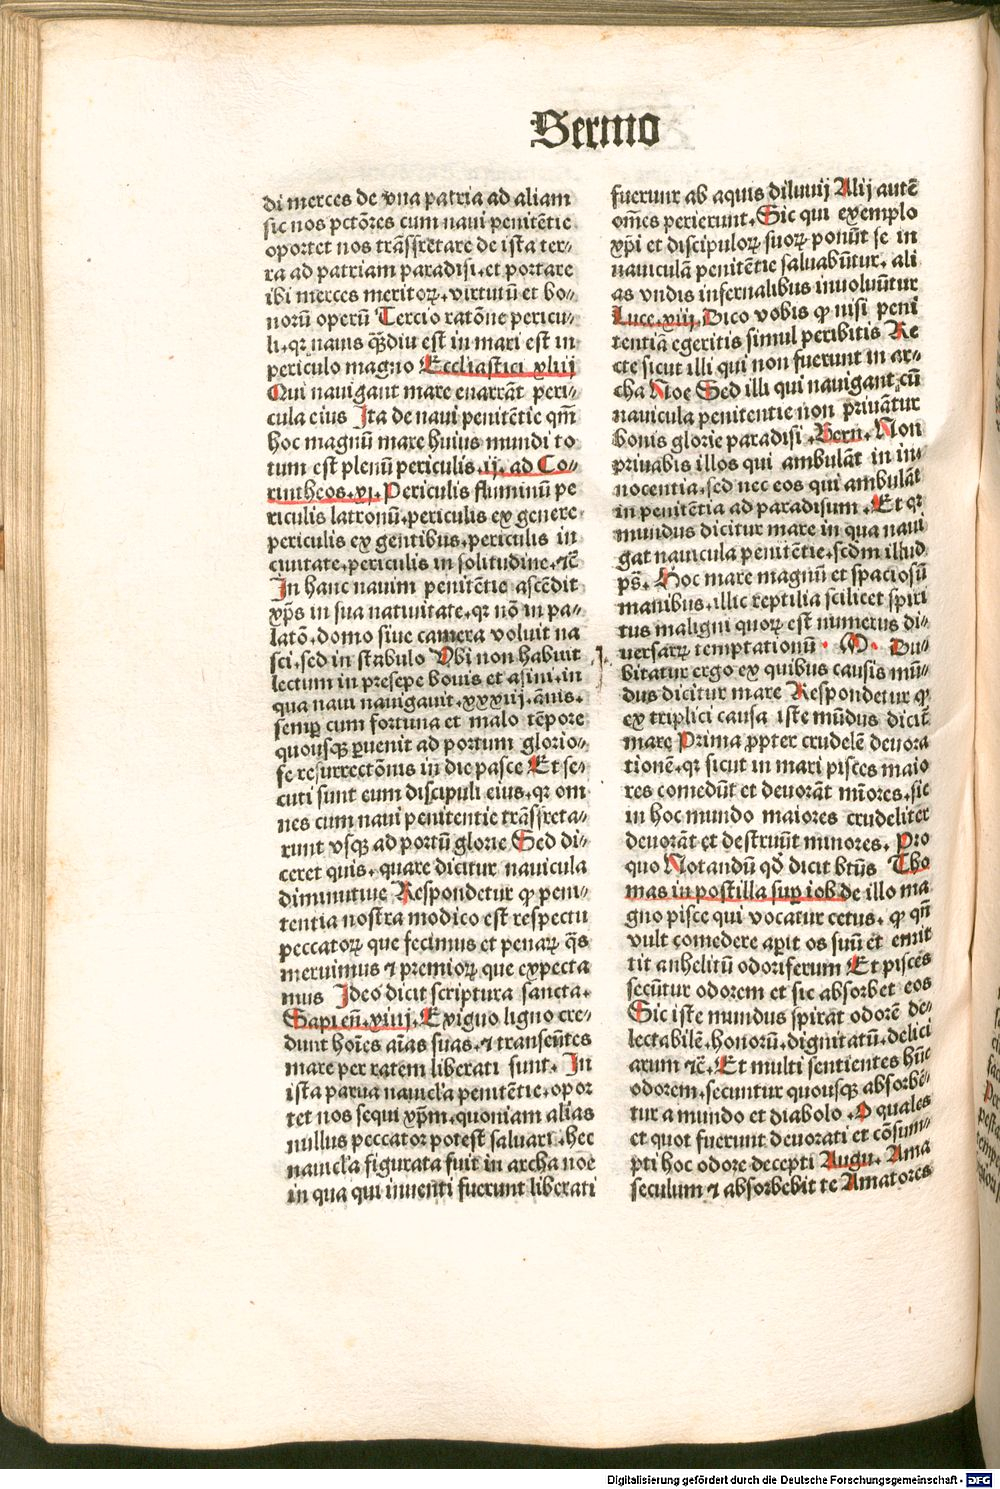 Sermo
di merces de vna patria ad aliam
sic nos pctōres cum naui penitētie
oportet nos trāsfretare de ista ter⸗
ra ad patriam paradisi.et portare
ibi merces meritoꝝ.virtutū et bo⸗
norū operū Tercio ratōne pericu⸗
li.qꝛ nauis q̄ȝdiu est in mari est in
periculo magno Ecclīastici xliij
Qui nauigant mare enarrāt peri⸗
cula eius Ita de naui penitētie qm̄
hoc magnū mare huius mundi to
tum est plenū periculis.ij. ad Co⸗
rintheos.xj. Periculis fluminū pe
riculis latronū.periculis ex genere
periculis ex gentibus.periculis in
ciuitate.periculis in solitudine.⁊c̄
In hanc nauim penitētie ascēdit
xp̄s in sua natiuitate.qꝛ nō in pa⸗
latō.domo siue camera voluit na
sci.sed in stabulo Vbi non habuit
lectum in presepe bouis et asini.in
qua naui nauigauit.xxxiij.ānis.
semꝑ cum fortuna et malo tēpore
quousqȝ ꝑuenit ad portum glorio⸗
se resurrectōnis in die pasce Et se⸗
cuti sunt eum discipuli eius.qꝛ om
nes cum naui penitentie trāsfreta⸗
runt vsqȝ ad portū glorie Sed di⸗
ceret quis. quare dicitur nauicula
diminutiue Respondetur ꝙ peni⸗
tentia nostra modico est respectu
peccatoꝝ que fecimus et penaꝝ q̄s
meruimus ⁊ premioꝝ que expecta
mus Ideo dicit scriptura sancta.
Sapien̄.xiiij. Exiguo ligno cre⸗
dunt hoīes aīas suas.⁊ transeūtes
mare per ratem liberati sunt. In
ista parua nauicl'a penitētie.opor
tet nos sequi xp̄m.quoniam alias
nullus peccator potest saluari.hec
nauicl'a figurata fuit in archa noe
in qua qui inuenti fuerunt liberati
fuerunt ab aquis diluuij Alij autē
om̄es perierunt. Sic qui exemplo
xp̄i et discipuloꝝ suoꝝ ponūt se in
nauiculā penitētie saluabūtur. ali
as vndis infernalibus inuoluūtur
Luce.xiij. Dico vobis ꝙ nisi peni
tentiā egeritis simul peribitis Re
cte sicut illi qui non fuerunt in ar⸗
cha Noe Sed illi qui nauigant cū
nauicula penitentie non priuātur
bonis glorie paradisi. Bern. Non
priuabis illos qui ambulāt in in⸗
nocentia.sed nec eos qui ambulāt
in penitētia ad paradisum. Et qꝛ
mundus dicitur mare in qua naui
gat nauicula penitētie.scdm illud
ps̄. Hoc mare magnū et spaciosū
manibus.illic reptilia scilicet spiri
tus maligni quoꝝ est numerus di⸗
uersaꝝ temptationū. M. Du⸗
bitatur ergo ex quibus causis mū⸗
dus dicitur mare Respondetur ꝙ
ex triplici causa iste mūdus dicit᷑
mare Prima ꝓpter crudelē deuora
tionē.qꝛ sicut in mari pisces maio
res comedūt et deuorāt mīores.sic
in hoc mundo maiores crudeliter
deuorāt et destruūt minores. Pro
quo Notandū qd̄ dicit btūs Tho
mas in postilla suꝑ iob de illo ma
gno pisce qui vocatur cetus. ꝙ qn̄
vult comedere aꝑit os suū et emit
tit anhelitū odoriferum Et pisces
secūtur odorem et sic absorbet eos
Sic iste mundus spirat odorē de⸗
lectabilē.honorū.dignitatū.delici
arum ⁊c̄. Et multi sentientes hūc
odorem.secuntur quousqȝ absorbē⸗
tur a mundo et diabolo. O quales
et quot fuerunt deuorati et cōsum⸗
pti hoc odore decepti Augu. Ama
seculum ⁊ absorbebit te Amatores
Digitalisierung gefördert durch die Deutsche Forschungsgemeinschaft - DFG